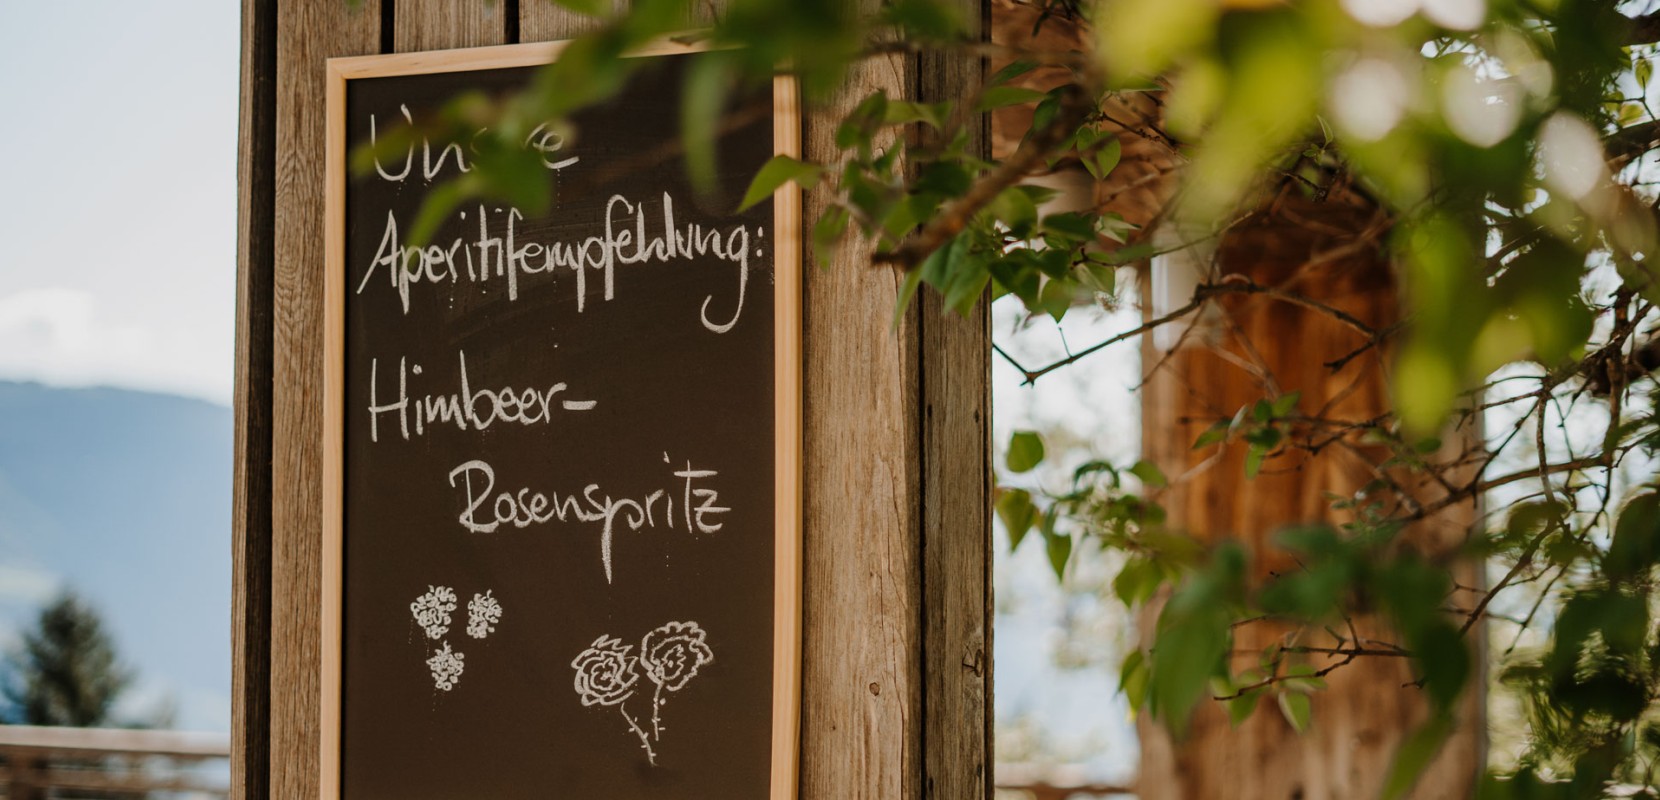 Unsere
Aperitifempfehlung:
Himbeer-
Rosenspritz